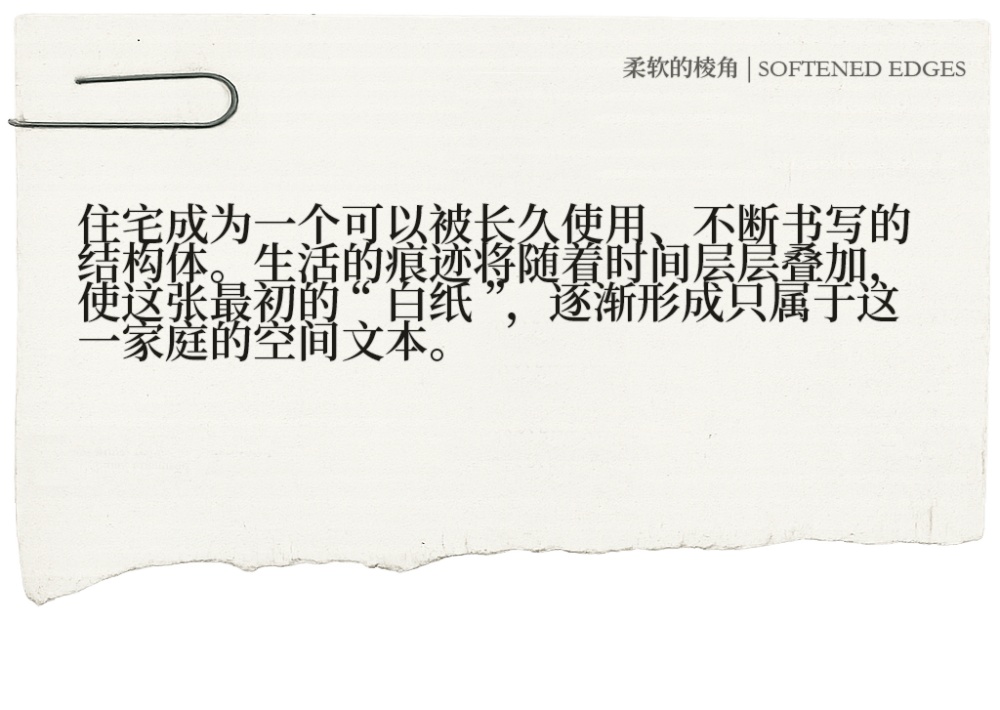 柔软的棱角 | SOFTENED EDGES
住宅成为一个可以被长久使用、不断书写的
结构体。生活的痕迹将随着时间层层叠加，
使这张最初的“白纸”，逐渐形成只属于这
一家庭的空间文本。